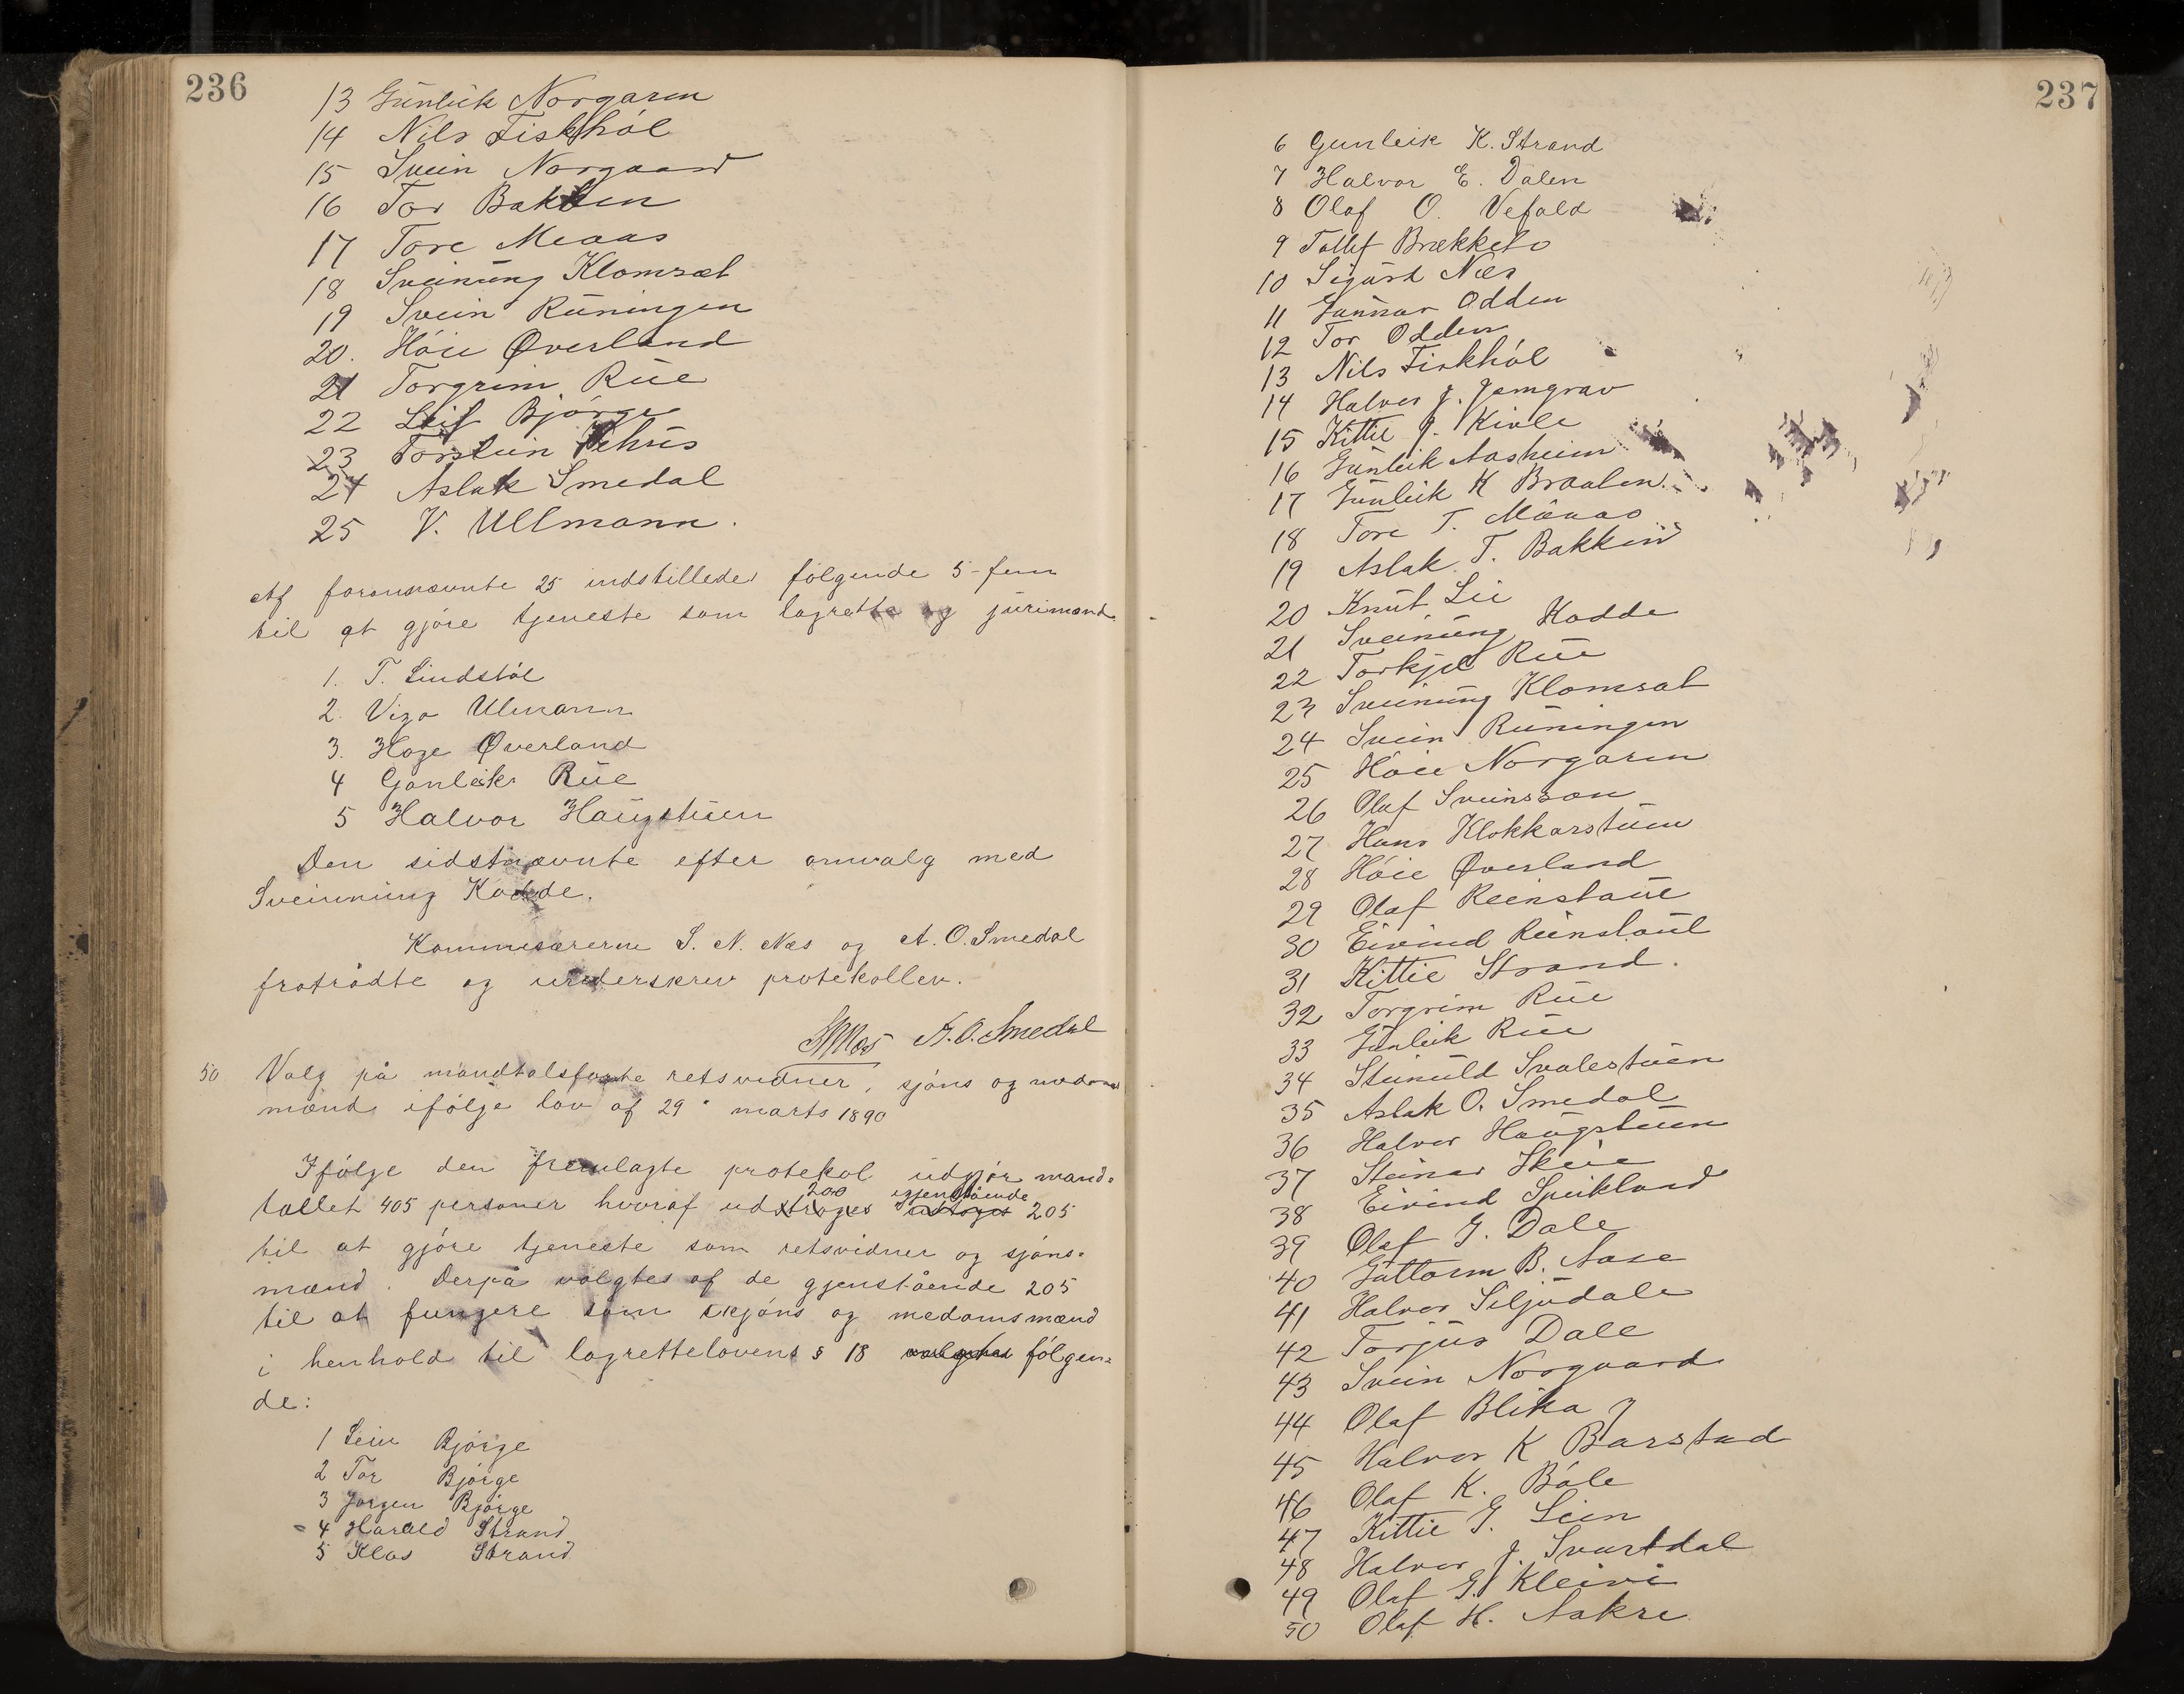 236
13 Günleik Norgaren
14 Nils Fiskhól
15 Svein Norgaard
16 Tor Bakken
17 Tore Meaas
18 Sveinüng Klomsæt
19 Svein Rüningen
20. Hóie Øverland
21 Torgrim Rüe
22 Leif Bjórge
23 Torstein Vehüs
24 Aslak Smedal
25 V. Ullmann.
Af forannævnte 25 indstilledes fölgende 5-fem
til at gjóre tjeneste som lagrette og jürimænd.
1. T. Lindstól
2. Vigo Ulmann
3. Hoge Øverland
4 Gonleik Rüe
5 Halvor Haügstüen
Den sidstnævnte efter omvalg med
Sveinnüng Kodde.
Kommisærerne S. N. Næs og A. O. Smedal
fratrådte og underskrev protekollen.
SNNæs A. O. Smedal
50 Valg på mandtalsförte retsvidner, sjóns og
mænd ifólge lov af 29 marts 1890
Ifólge den fremlagte protekol üdgjór mand=
200 igjenstående
tallet 405 personer hvoraf udstrages 205
til at gjóre tjeneste som retsvidner og sjóns=
mænd. Derpå valgtes af de gjenstående 205
til at fungere som skjóns og medomsmænd
i henhold til lagrettelovens § 18 fólgen=
de:
1 Bjórge
2 Tor Bjórge
3 Jorgen Bjórge
4 Harald Strand
5 Klas Strand
237
6 Gunleik K. Strand
7 Halvor E. Dalen
8 Olaf O. Vefald
9 Tollef Brækketo
10 Sigürd Næs
11 Günnar Odden
12 Tor Odden
13 Nils Fiskhól
14 Halvor J. Jamgrav
15 Kittil J. Kivle
16 Günleik Aasheim
17 Günleik K Braalen
18 Tore T. Mæaas
19 Aslak T. Bakken
20 Knüt Lie
21 Sveinüng Kodde
22 Torkjel Rüe
23 Sveinüng Klomsæt
24 Svein Rüningen
25 Hóie Norgaren
26 Olaf Sveinsson
27 Hans Klokkarstüen
28 Hóie Øverland
29 Olaf Reinstaül
30 Eivind Reinstaül
31 Kittil Strand.
32 Torgrim Rüe
33 Günleik Rüe
34 Steinüld Svalestüen
35 Aslak O. Smedal
36 Halvor Haügstüen
37 Steinar Skeie
38 Eivind Speikland
39 Olaf G. Dale
40 Güttorm B. Aase
41 Halvor Seljüdale
42 Torjüs Dale
43 Svein Norgaard
44 Olaf Blika
45 Halvor K Barstad
46 Olaf K. Bóle
47 Kittil G. Lien
48 Halvor J. Svartdal
49 Olaf G. Kleivi
50 Olaf H. Aakre